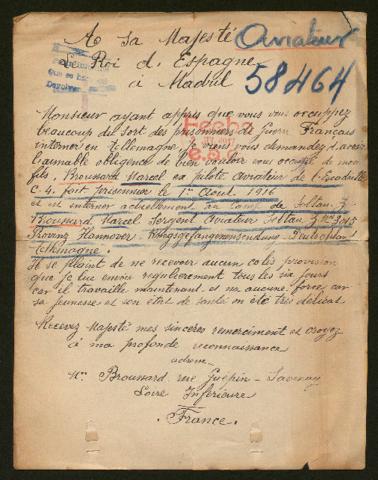 A Sa Majesté
Aviateur
le Roi d'Espagne
à Madrid
58464
Monsieur ayant appris que vous vous occupez
beaucoup du sort des prisonniers de Guerre Français
interner en Allemagne je viens vous demander d'avoir
l'aimable obligence de bien vouloir vous occupé de mon
fils, Broussard Marcel ex pilote aviateur de l'Escadrille
C-4. fait prisonnier le 1er Aout 1916
et est interner actuellement au Camp de Soltau, 3
Broussard Marcel Sergent Aviateur Soltau 3
Provinz Hannover Kriegsgefangenensendung Deutschland
Allemagne
Il se plaint de ne recevoir aucun colis provision
que je lui envoi regulierement tous les six jours
car il travaille maintenant et na aucune force, car
sa jeunesse et son état de santé on été très délicat
Recevez Majesté mes sincères remerciment et croyez
à ma profonde reconnaissance
adresse
Broussard rue Guépin - Savenay
Loire Inférieure
France.